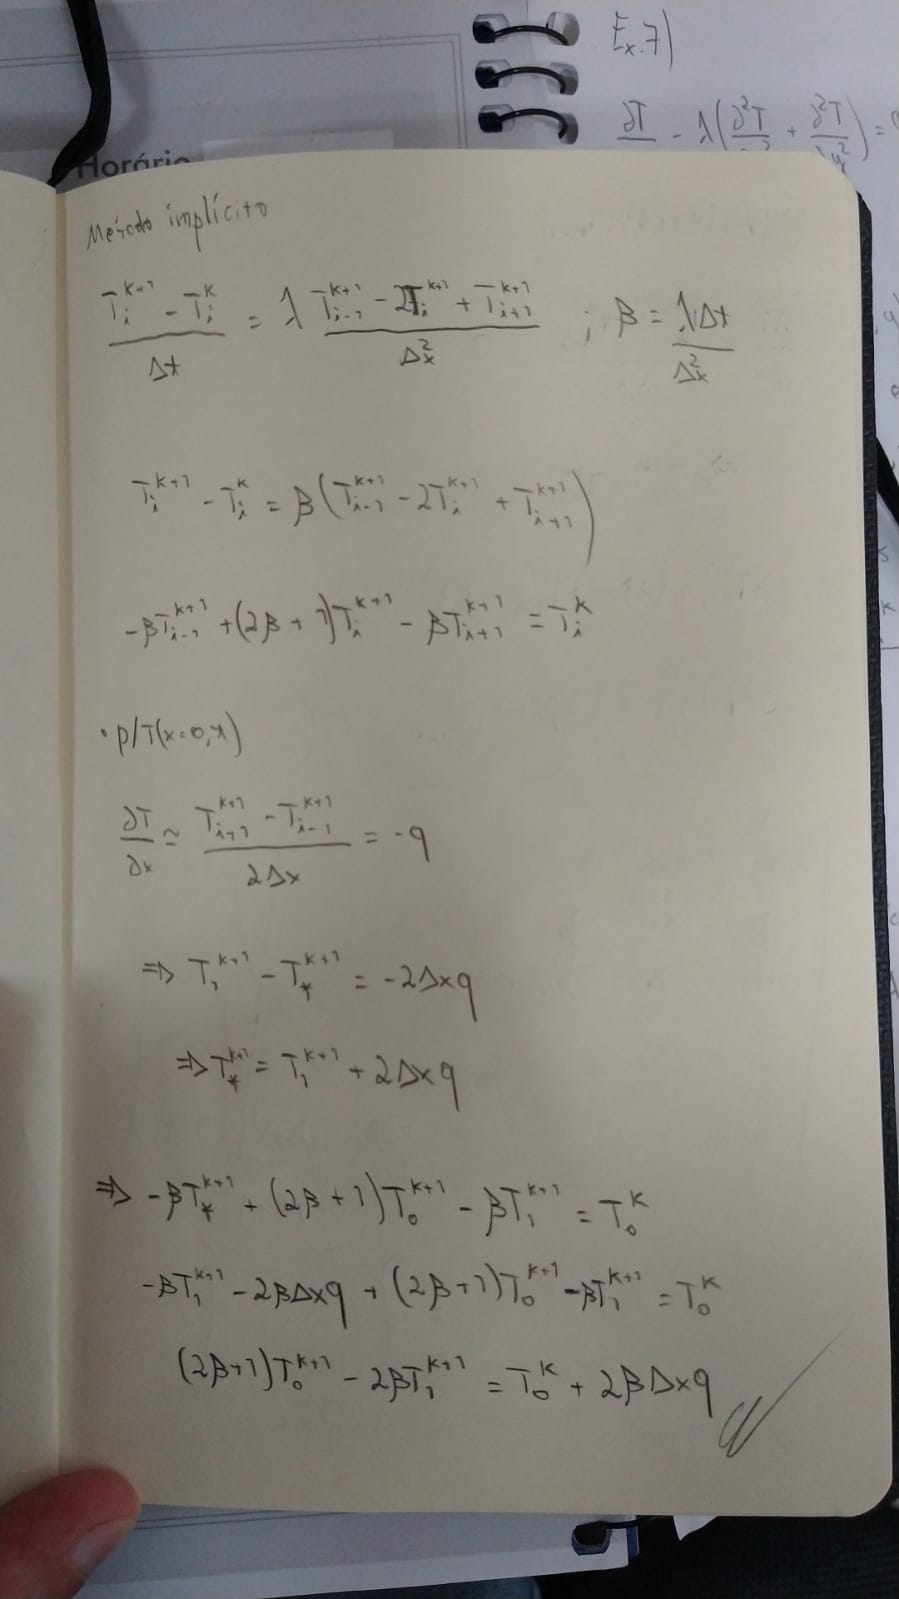 Ex.7)
∂T/ - λ(∂²T/ + ∂²T/ ) =
Horário
Método implícito
(T_i^{k+1} - T_i^k)/Δt = λ (T_{i-1}^{k+1} - 2T_i^{k+1} + T_{i+1}^{k+1})/Δx² ; β = λΔt/Δx²
T_i^{k+1} - T_i^k = β(T_{i-1}^{k+1} - 2T_i^{k+1} + T_{i+1}^{k+1})
-βT_{i-1}^{k+1} + (2β + 1)T_i^{k+1} - βT_{i+1}^{k+1} = T_i^k
• p/T(x=0,t)
∂T/∂x ≃ (T_{i+1}^{k+1} - T_{i-1}^{k+1})/2Δx = -q
⇒ T_1^{k+1} - T_*^{k+1} = -2Δxq
⇒ T_*^{k+1} = T_1^{k+1} + 2Δxq
⇒ -βT_*^{k+1} + (2β+1)T_0^{k+1} - βT_1^{k+1} = T_0^k
-βT_1^{k+1} - 2βΔxq + (2β+1)T_0^{k+1} - βT_1^{k+1} = T_0^k
(2β+1)T_0^{k+1} - 2βT_1^{k+1} = T_0^k + 2βΔxq